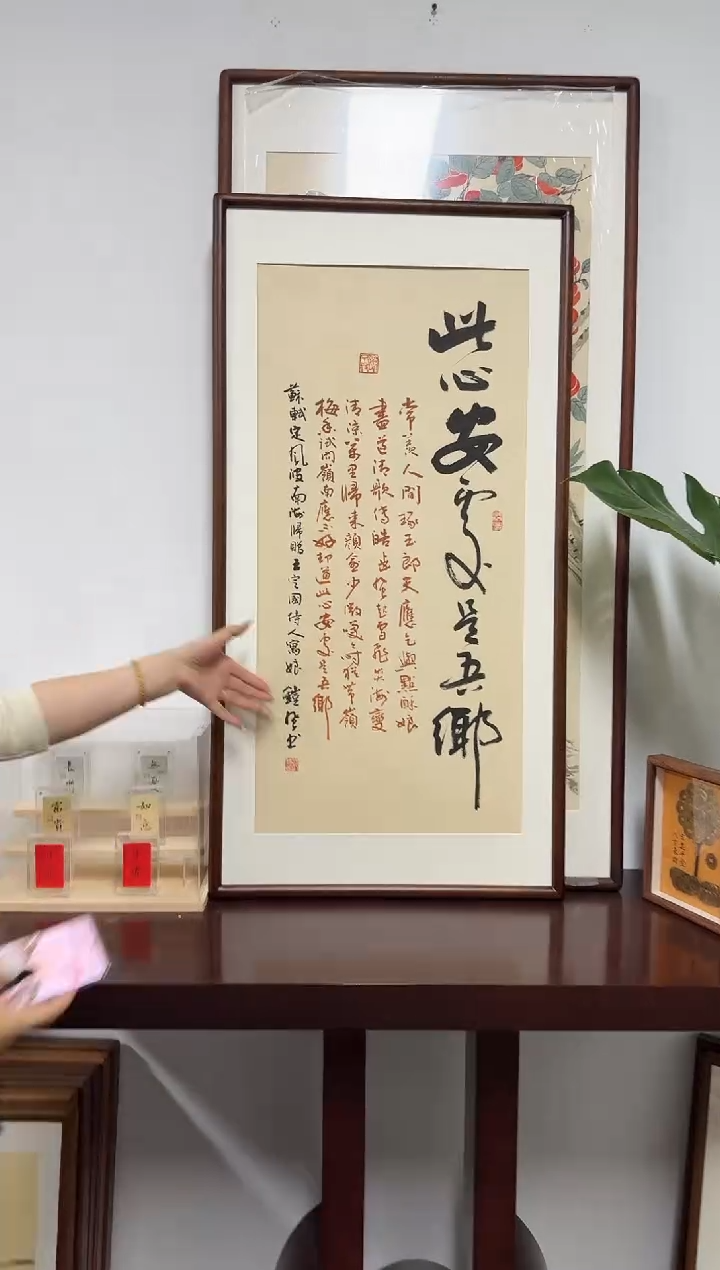 此心安處是吾鄉
常羡人間琢玉郎天應乞與點酥娘
盡道清歌傳皓齒風起雪飛炎海變
清涼萬里歸來顏愈少微笑笑時猶帶嶺
梅香試問嶺南應不好却道此心安處是吾鄉
蘇軾定風波南海歸贈王定國侍人寓娘 書
富貴
如意